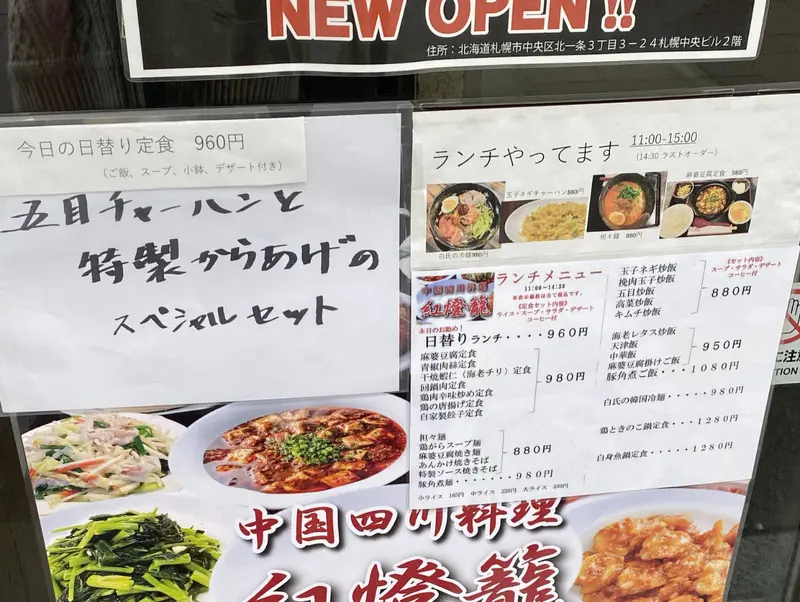 NEW OPEN!!
住所：北海道札幌市中央区北一条３丁目３－２４札幌中央ビル２階
今日の日替り定食 960円
（ご飯、スープ、小鉢、デザート付き）
五目チャーハンと
特製からあげの
スペシャルセット
ランチやってます 11:00-15:00
(14:30 ラストオーダー)
白氏の冷麺980円
玉子ネギチャーハン880円
担々麺 880円
麻婆豆腐定食 980円
中国四川料理
紅燈籠
ランチメニュー
11:00〜14:30
※表示価格は全て税込です。
《定食セット内容》
ライス・スープ・サラダ・デザート
コーヒー付
本日のお勧め！
日替りランチ・・・・960円
麻婆豆腐定食
青椒肉絲定食
干焼蝦仁（海老チリ）定食
回鍋肉定食
鶏肉辛味炒め定食
鶏の唐揚げ定食
自家製餃子定食
980円
担々麺
鶏がらスープ麺
麻婆豆腐焼きそば
あんかけ焼きそば
特製ソース焼きそば
880円
豚角煮麺・・・・・980円
小ライス 165円 中ライス 220円 大ライス 330円
《セット内容》
スープ・サラダ・デザート
コーヒー付
玉子ネギ炒飯
挽肉玉子炒飯
五目炒飯
高菜炒飯
キムチ炒飯
880円
海老レタス炒飯
天津飯
中華飯
麻婆豆腐掛けご飯
950円
豚角煮ご飯・・・・1080円
白氏の韓国冷麺・・・・・980円
鶏ときのこ鍋定食・・・1280円
白身魚鍋定食・・・・1280円
中国四川料理
紅燈籠
に注意
TION